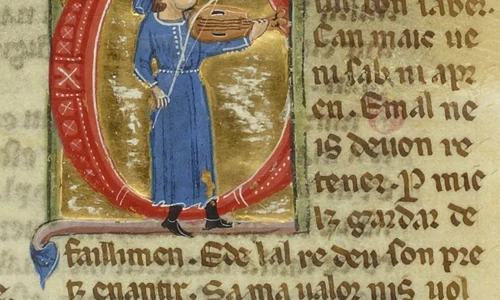 saber.
Can maic ue
ni sab ni apr
en. Emal ne
is deuon re
tener. P mie
lz gardar de
faillimen. Ede lal re deu son pre
tz enantir. Sa ma ualor nis uol